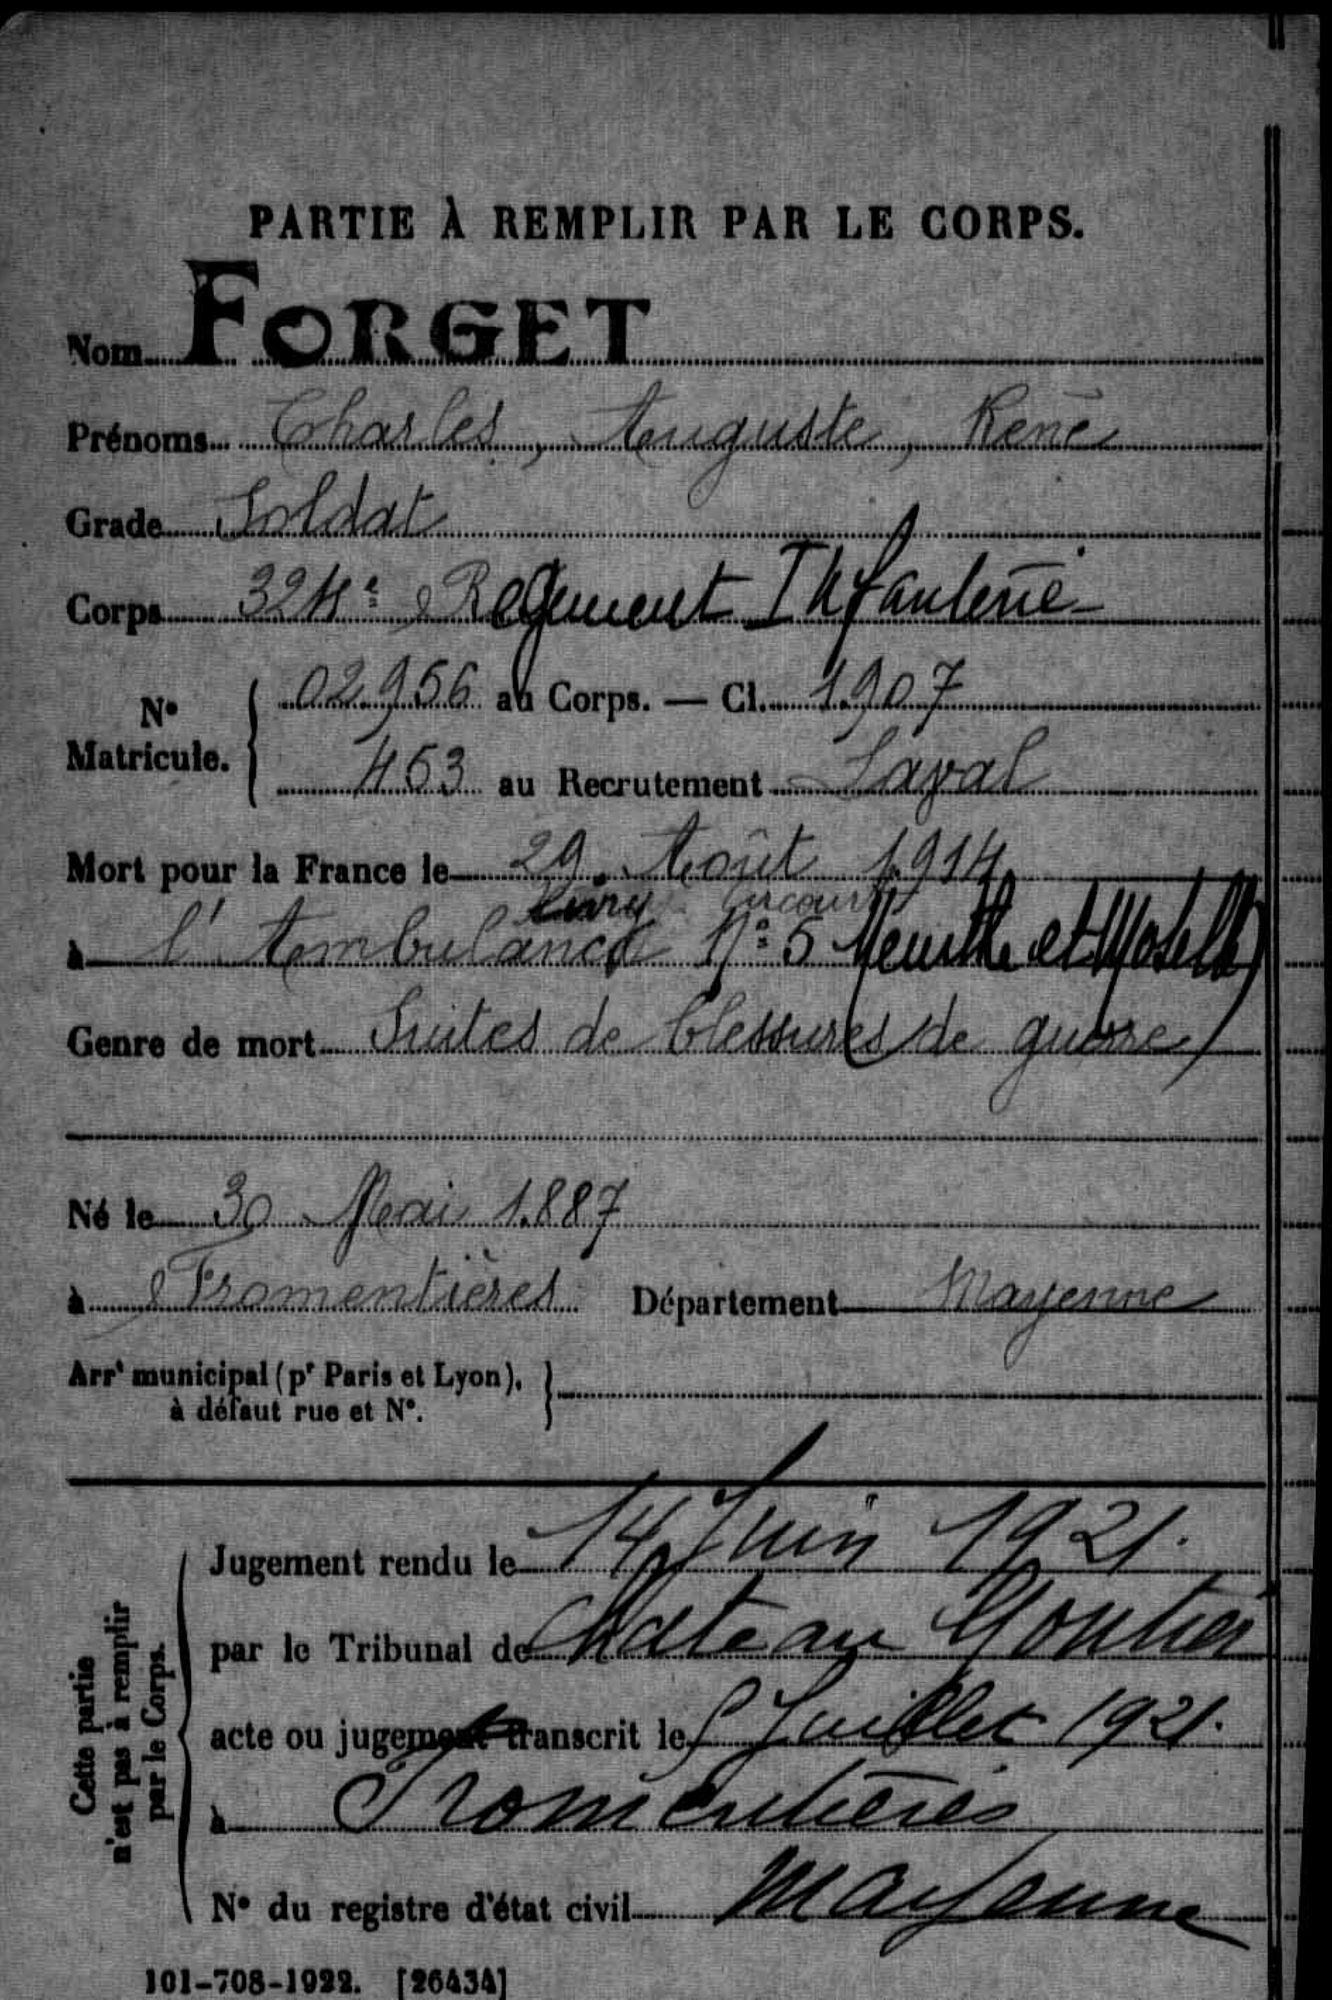 PARTIE À REMPLIR PAR LE CORPS.
Nom FORGET
Prénoms Charles, Auguste, René
Grade Soldat
Corps 324e Régiment Infanterie
N° Matricule. 02956 au Corps. — Cl. 1907
453 au Recrutement Laval
Mort pour la France le 29 Août 1914
à l'Ambulance N° 5 (Meurthe et Moselle)
Genre de mort Suites de blessures de guerre
Né le 30 Mai 1887
à Fromentières Département Mayenne
Arrt municipal (pr Paris et Lyon),
à défaut rue et N°.
Cette partie
n'est pas à remplir
par le Corps.
Jugement rendu le 14 Juin 1921.
par le Tribunal de Château Gontier
acte ou jugement transcrit le Juillet 1921.
à Fromentières
N° du registre d'état civil Mayenne
101-708-1922. [26434]